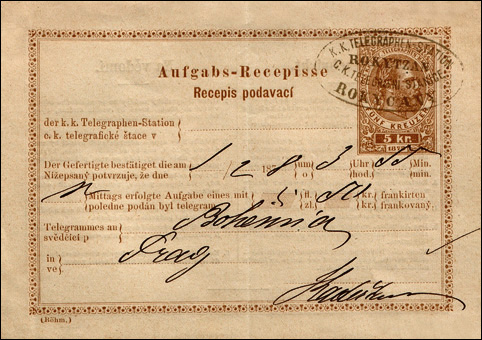 K.K. TELEGRAPHEN-STATION
ROKYTZAN
ROKYCANY
FÜNF KREUZER
5 kr.
Aufgabs-Recepisse
Recepis podavací
der k. k. Telegraphen-Station
c. k. telegrafické štace v
Der Gefertigte bestätiget die am 1/2 187 8 3 Uhr 55 Min.
Nížepsaný potvrzuje, že dne hod. min.
N Mittags erfolgte Aufgabe eines mit fl. 50 kr. frankirten
poledne podán byl telegram zl. kr. frankovaný,
Telegrammes an Bohemia
svědčící p
in Prag
ve
(Böhm.)